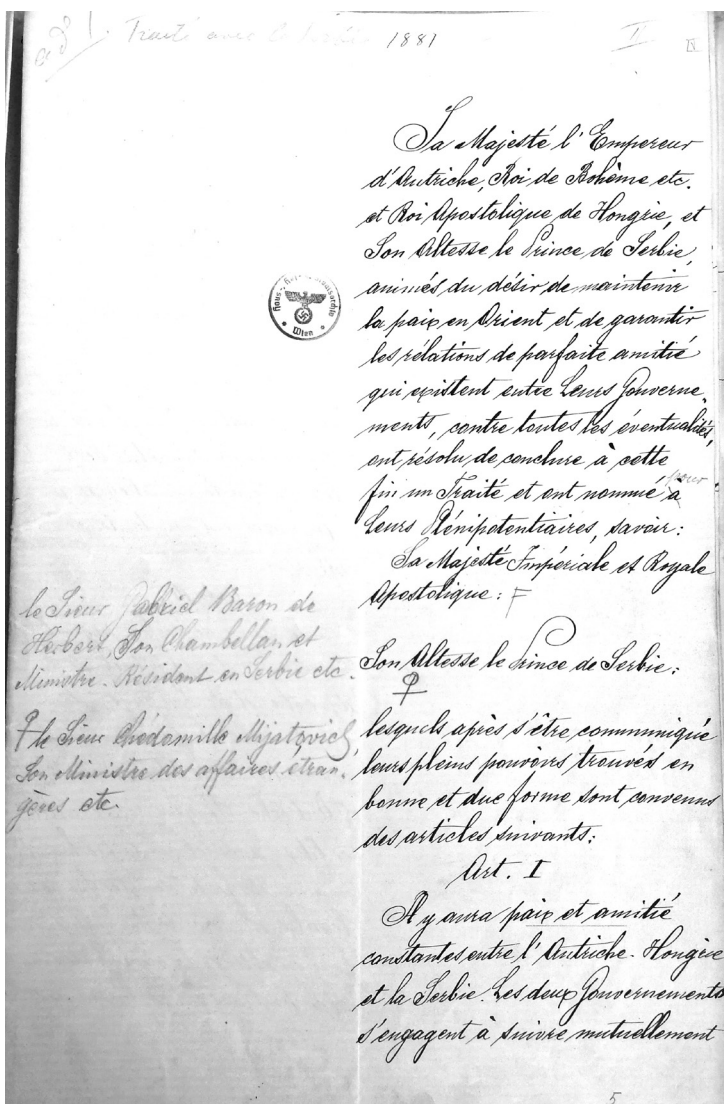 ad 1. Traité avec la Serbie 1881
II
IV
Sa Majesté l'Empereur
d'Autriche, Roi de Bohème etc.
et Roi Apostolique de Hongrie, et
Son Altesse le Prince de Serbie,
animés du désir de maintenir
la paix en Orient et de garantir
les rélations de parfaite amitié
qui existent entre Leurs Gouverne-
ments, contre toutes les éventualités,
ont résolu de conclure à cette
fin un Traité et ont nommé à
pour
Leurs Plénipotentiaires, savoir:
Sa Majesté Impériale et Royale
Apostolique: F
Son Altesse le Prince de Serbie:
lesquels après s'être communiqué
leurs pleins pouvoirs trouvés en
bonne et due forme sont convenus
des articles suivants:
Art. I
Il y aura paix et amitié
constantes entre l'Autriche-Hongrie
et la Serbie. Les deux Gouvernements
s'engagent à suivre mutuellement
le Sieur Gabriel Baron de
Herbert, Son Chambellan et
Ministre-Résident en Serbie etc.
le Sieur Chedomille Mijatovich
Son Ministre des affaires étran-
gères etc.
Wien
5